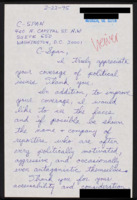 2-23-95
C-SPAN
400 N. CAPITOL ST. N.W.
SUITE 650
WASHINGTON, D.C. 20001
C-Span,
I truly appreciate
your coverage of political
issues. In
addition, to improve
your coverage, I would
like to see the
face and if possible
be shown the
name & company of
reporters, who are often
very politically motivated,
aggressive, and occasionally
over antagonistic themselves.
Thank you for your
availability and consideration